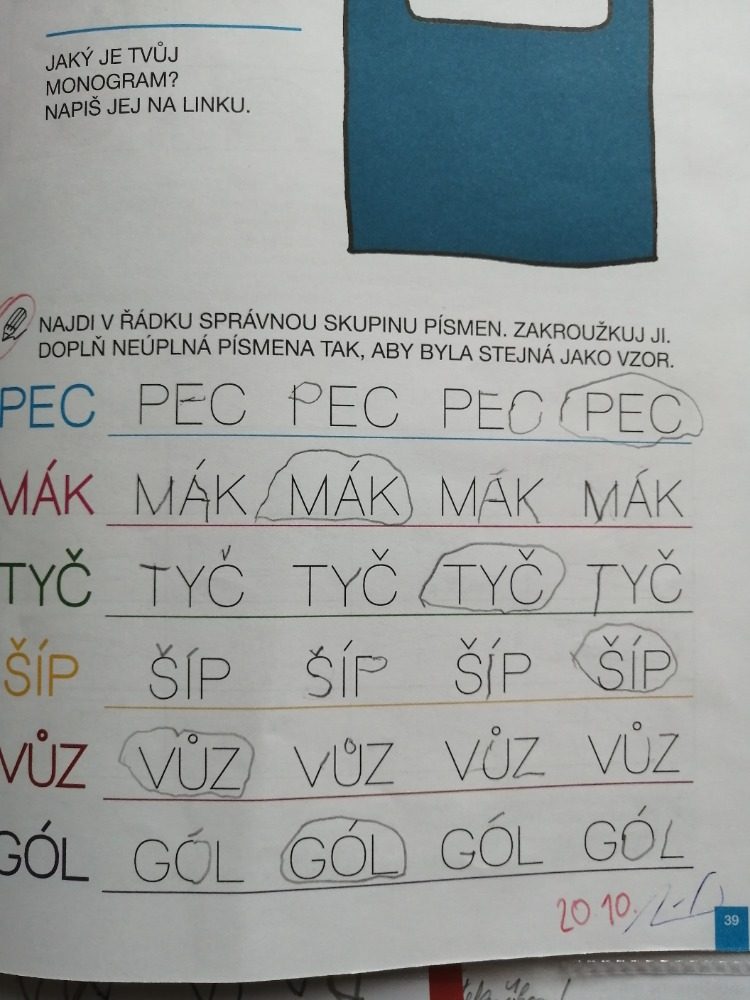 JAKÝ JE TVŮJ
MONOGRAM?
NAPIŠ JEJ NA LINKU.
NAJDI V ŘÁDKU SPRÁVNOU SKUPINU PÍSMEN. ZAKROUŽKUJ JI.
DOPLŇ NEÚPLNÁ PÍSMENA TAK, ABY BYLA STEJNÁ JAKO VZOR.
PEC PEC PEC PEC PEC
MÁK MÁK MÁK MÁK MÁK
TYČ TYČ TYČ TYČ TYČ
ŠÍP ŠÍP ŠÍP ŠÍP ŠÍP
VŮZ VŮZ VŮZ VŮZ VŮZ
GÓL GÓL GÓL GÓL GÓL
20 10.
39